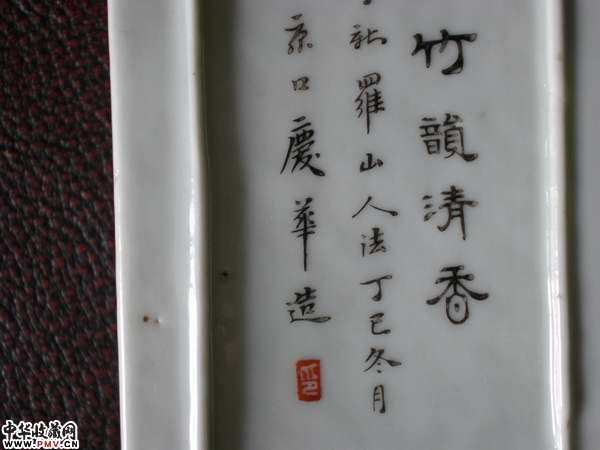 竹韻清香
新羅山人法丁巳冬月
慶華造
中华收藏网
WWW.PMV.CN